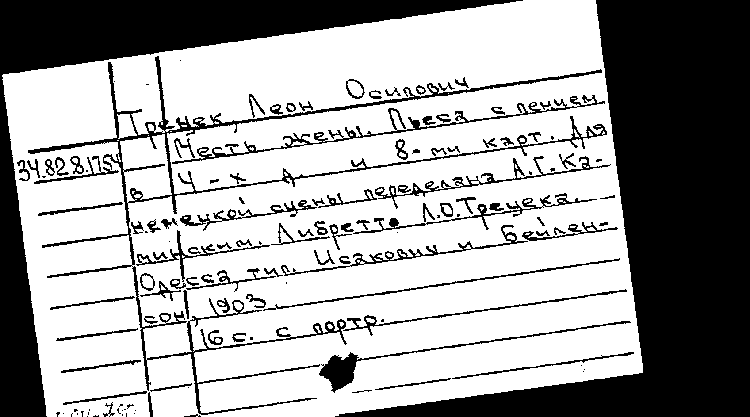 Трецек, Леон Осипович
Месть жены. Пьеса с пением
34.82 8.1754
в 4-х д. и 8-ми карт. Для
немецкой сцены переделана А.Г. Ка-
минским. Либретто Л.О. Трецека.
Одесса, тип. Исакович и Бейлен-
сон, 1903.
16 с. с портр.